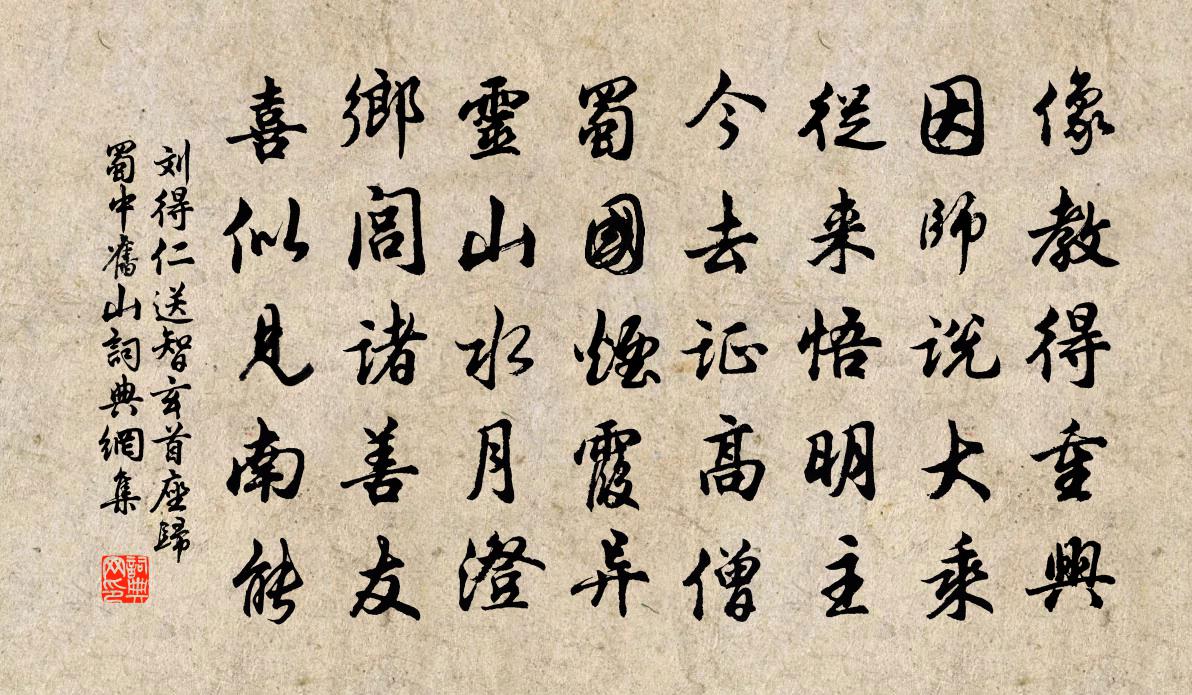 像教得重興
因師說大乘
從来悟明主
今去证高僧
蜀國煙霞异
靈山水月澄
鄉閭諸善友
喜似見南能
刘得仁送智玄首座歸
蜀中舊山詞典網集
詞典
网印